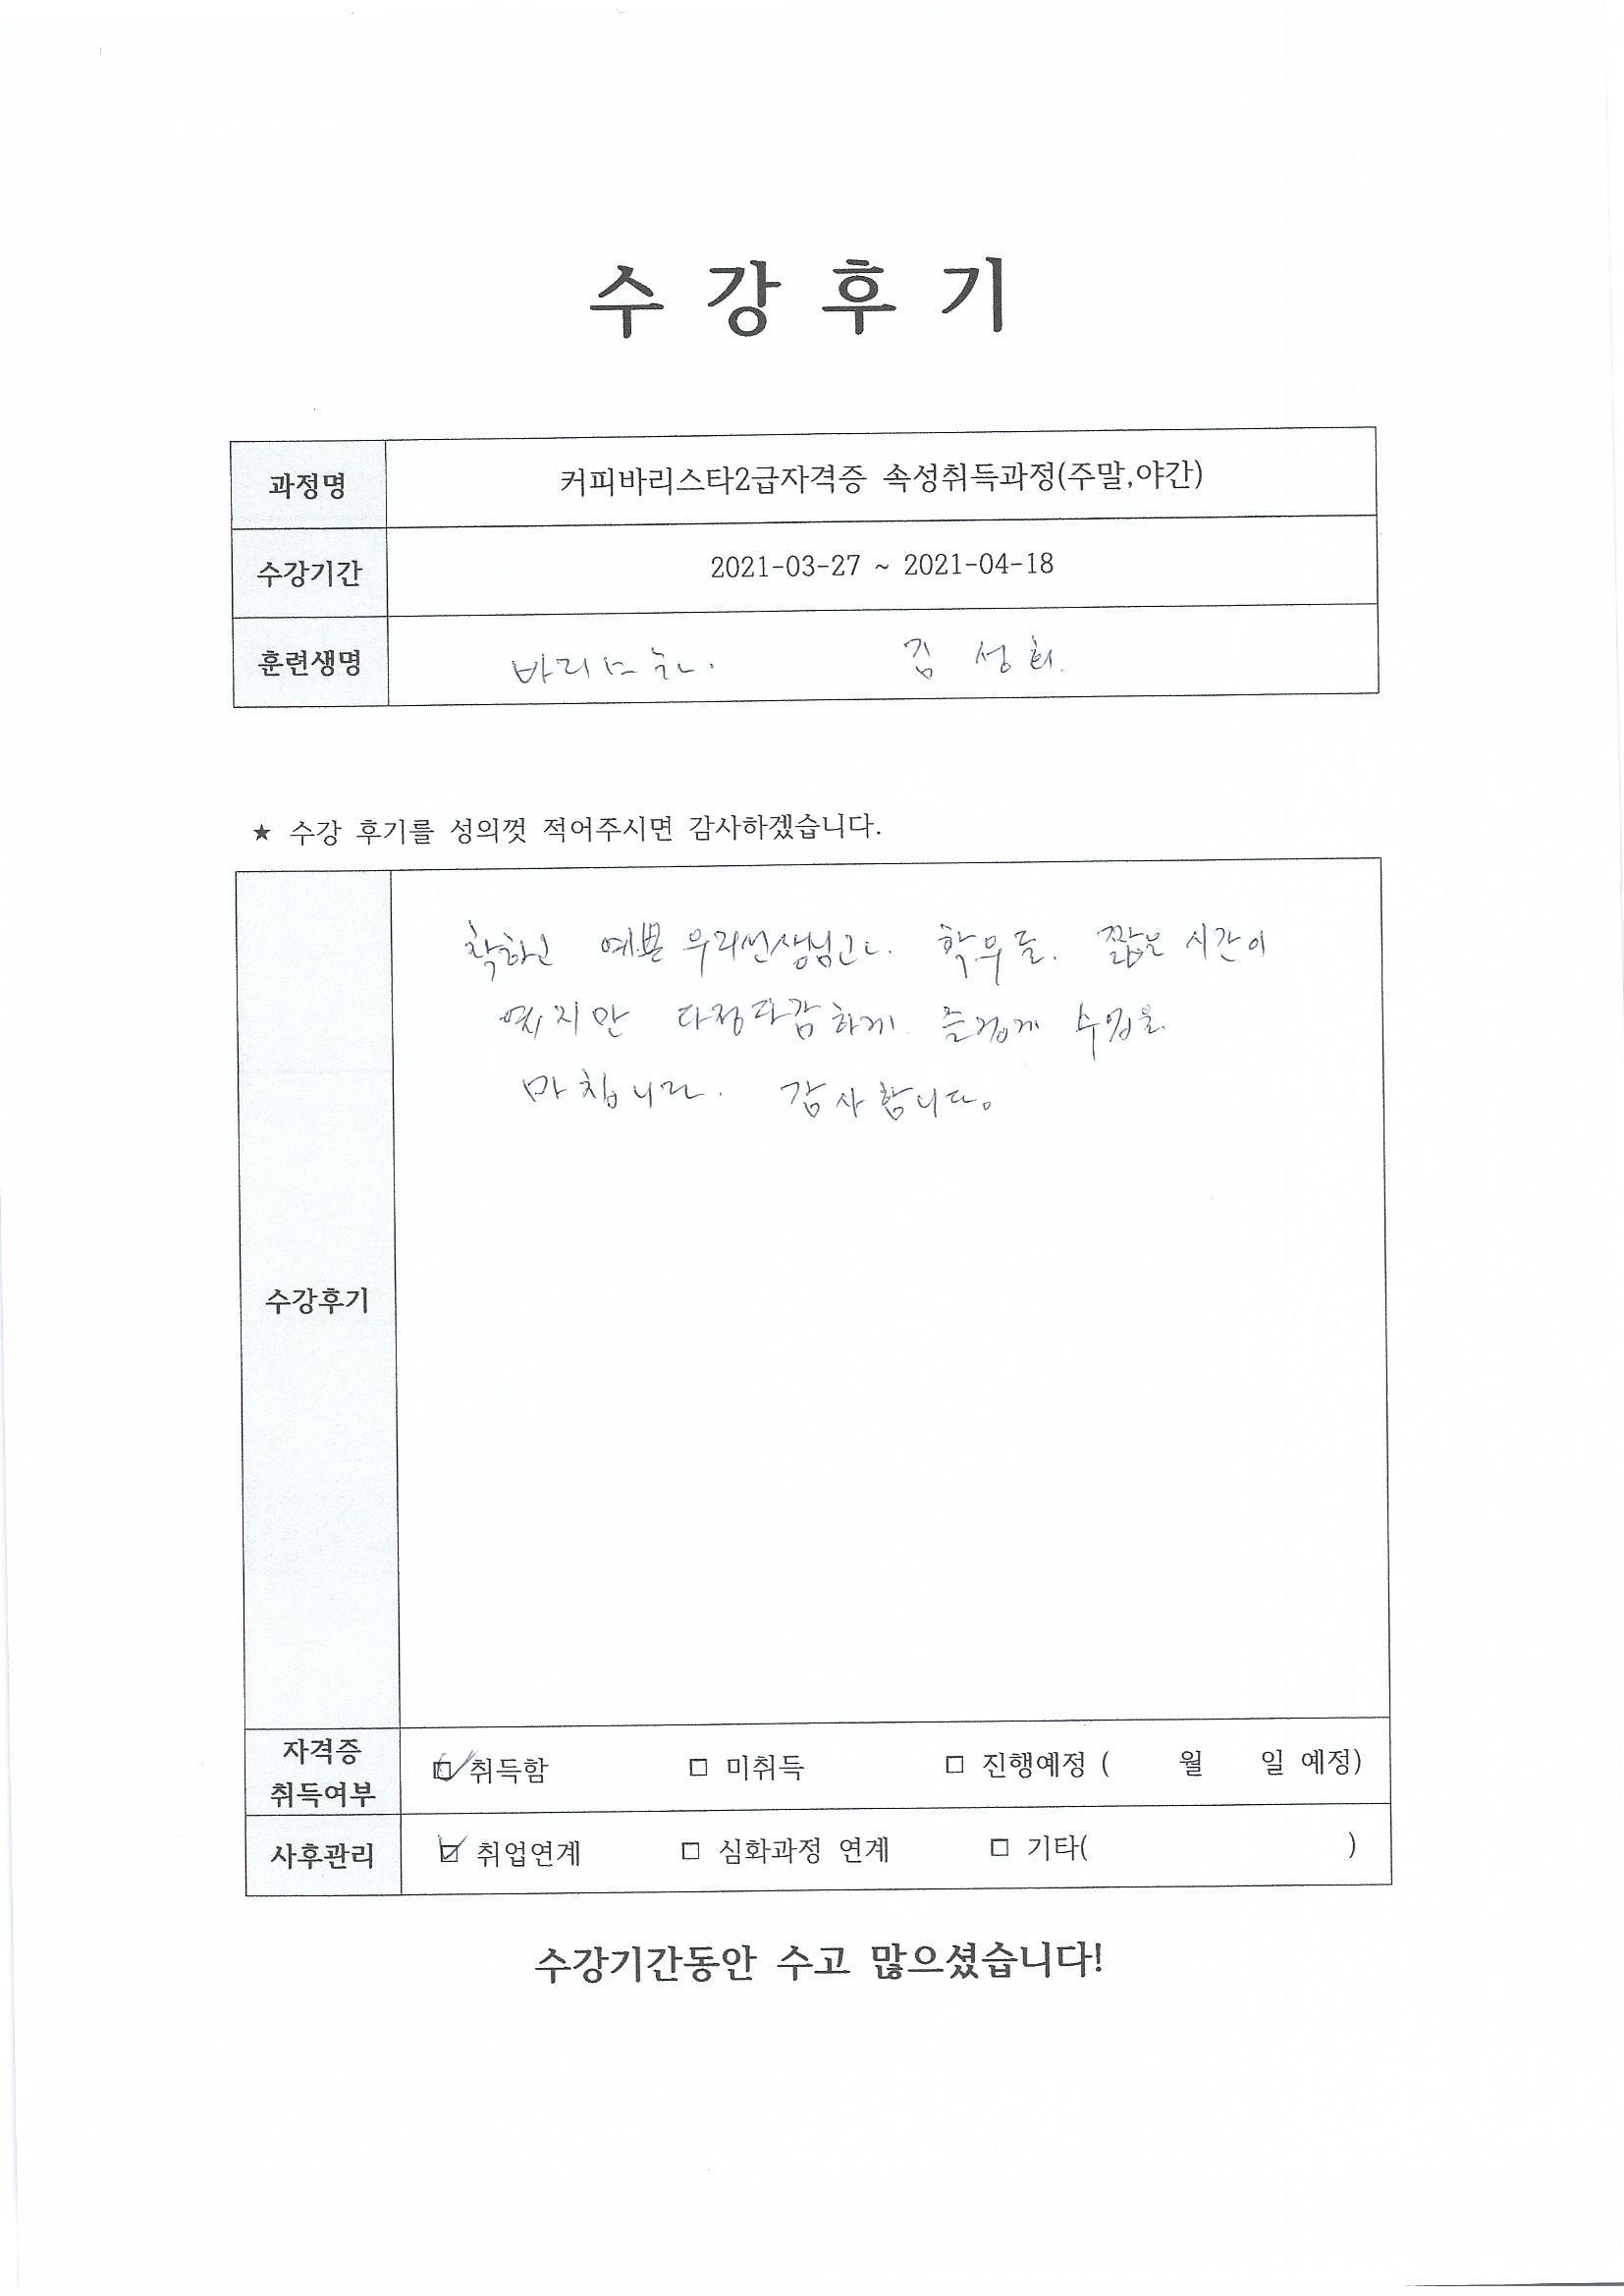 수강후기
과정명 커피바리스타2급자격증 속성취득과정(주말,야간)
수강기간 2021-03-27 ~ 2021-04-18
훈련생명 김 성희.
★ 수강 후기를 성의껏 적어주시면 감사하겠습니다.
착하고 예쁜 우리선생님과. 학우들. 짧은 시간이
였지만 다정다감하게 즐겁게 수업을
마칩니다. 감사합니다。
수강후기
자격증
취득여부
☑ 취득함 □ 미취득 □ 진행예정 ( 월 일 예정)
사후관리 ☑ 취업연계 □ 심화과정 연계 □ 기타( )
수강기간동안 수고 많으셨습니다!